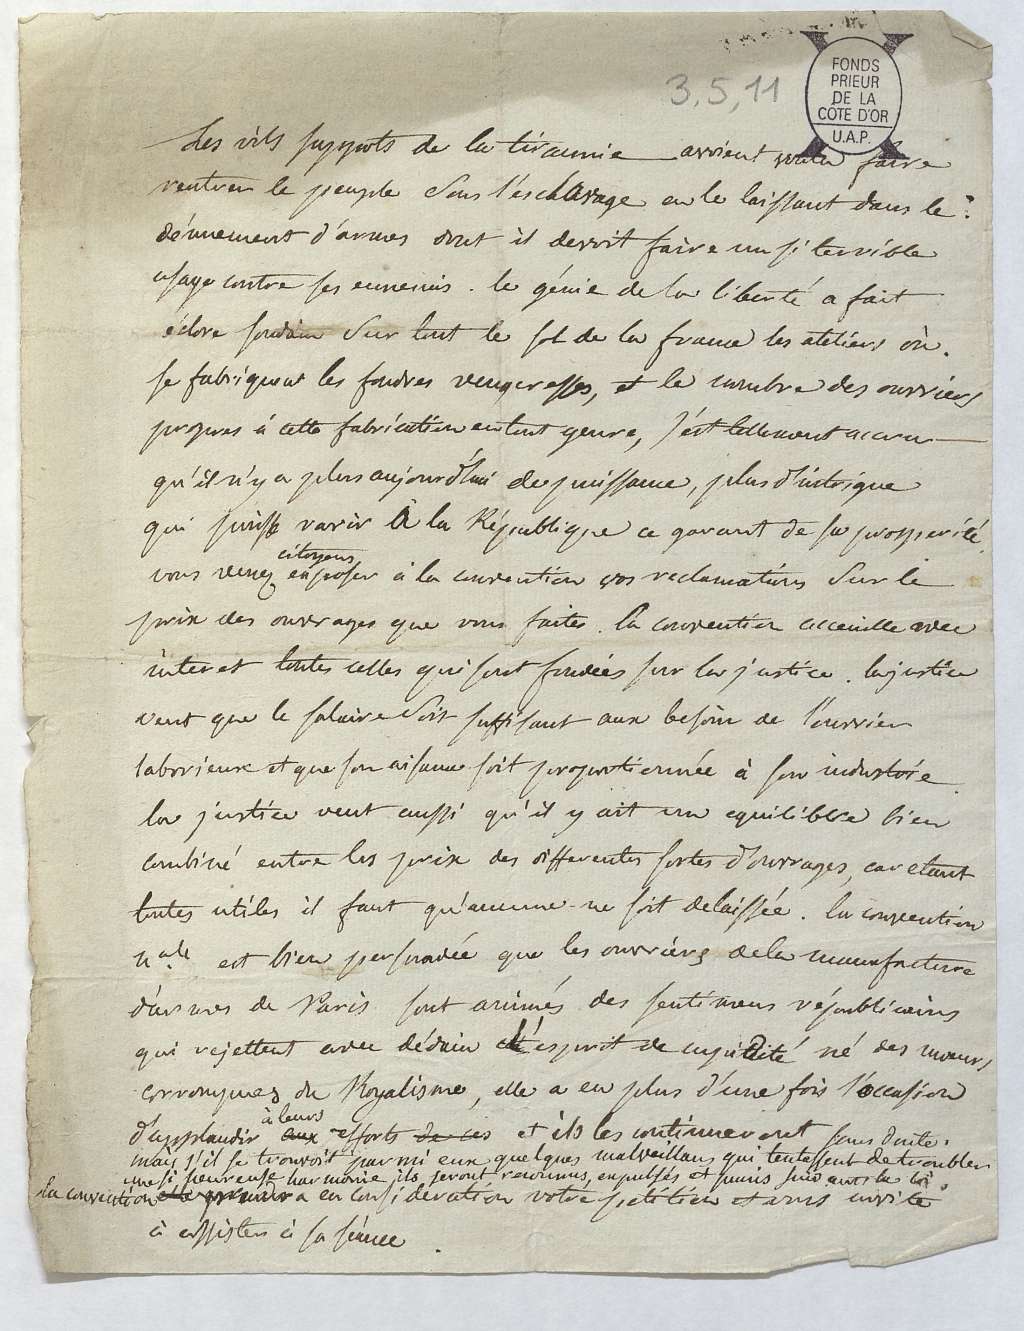 3, 5, 11
FONDS
PRIEUR
DE LA
CÔTE D'OR
U.A.P.
Les vils supports de la tirannie avoient voulu faire
rentrer le peuple sous l'esclavage en le laissant dans le
dénuement d'armes dont il devoit faire un si terrible
usage contre ses ennemis. le génie de la liberté a fait
éclore soudain sur tout le sol de la france les ateliers où
se fabriquent les foudres vengeresses, et le nombre des ouvriers
propres à cette fabrication en tout genre, s'est tellement accru
qu'il n'y a plus aujourd'hui de puissance, plus d'intrigue
qui puisse ravir à la République ce garant de sa prospérité.
vous venez citoyens exposer à la convention vos reclamations sur le
prix des ouvrages que vous faites. la convention accueille avec
interet toutes celles qui sont fondées sur la justice. la justice
veut que le salaire soit suffisant aux besoin de l'ouvrier
laborieux et que son aisance soit proportionnée à son industrie.
la justice veut aussi qu'il y ait un equilibre bien
combiné entre les prix des differentes sortes d'ouvrages, car etant
toutes utiles il faut qu'aucune ne soit delaissée. la convention
n.ale est bien persuadée que les ouvriers de la manufacture
d'armes de Paris sont animés des sentimens républicains
qui rejettent avec dédain l'esprit de cupidité né des moeurs
corrompues du Royalisme, elle a eu plus d'une fois l'occasion
d'applaudir à leurs aux efforts de ces et ils les continueront sans doute.
mais s'il se trouvoit parmi eux quelques malveillans qui tentassent de troubler
une si heureuse harmonie ils seront reconnus, expulsés et punis suivant la loi.
La convention elle prendra en consideration votre pétition et vous invite
à assister à sa séance.